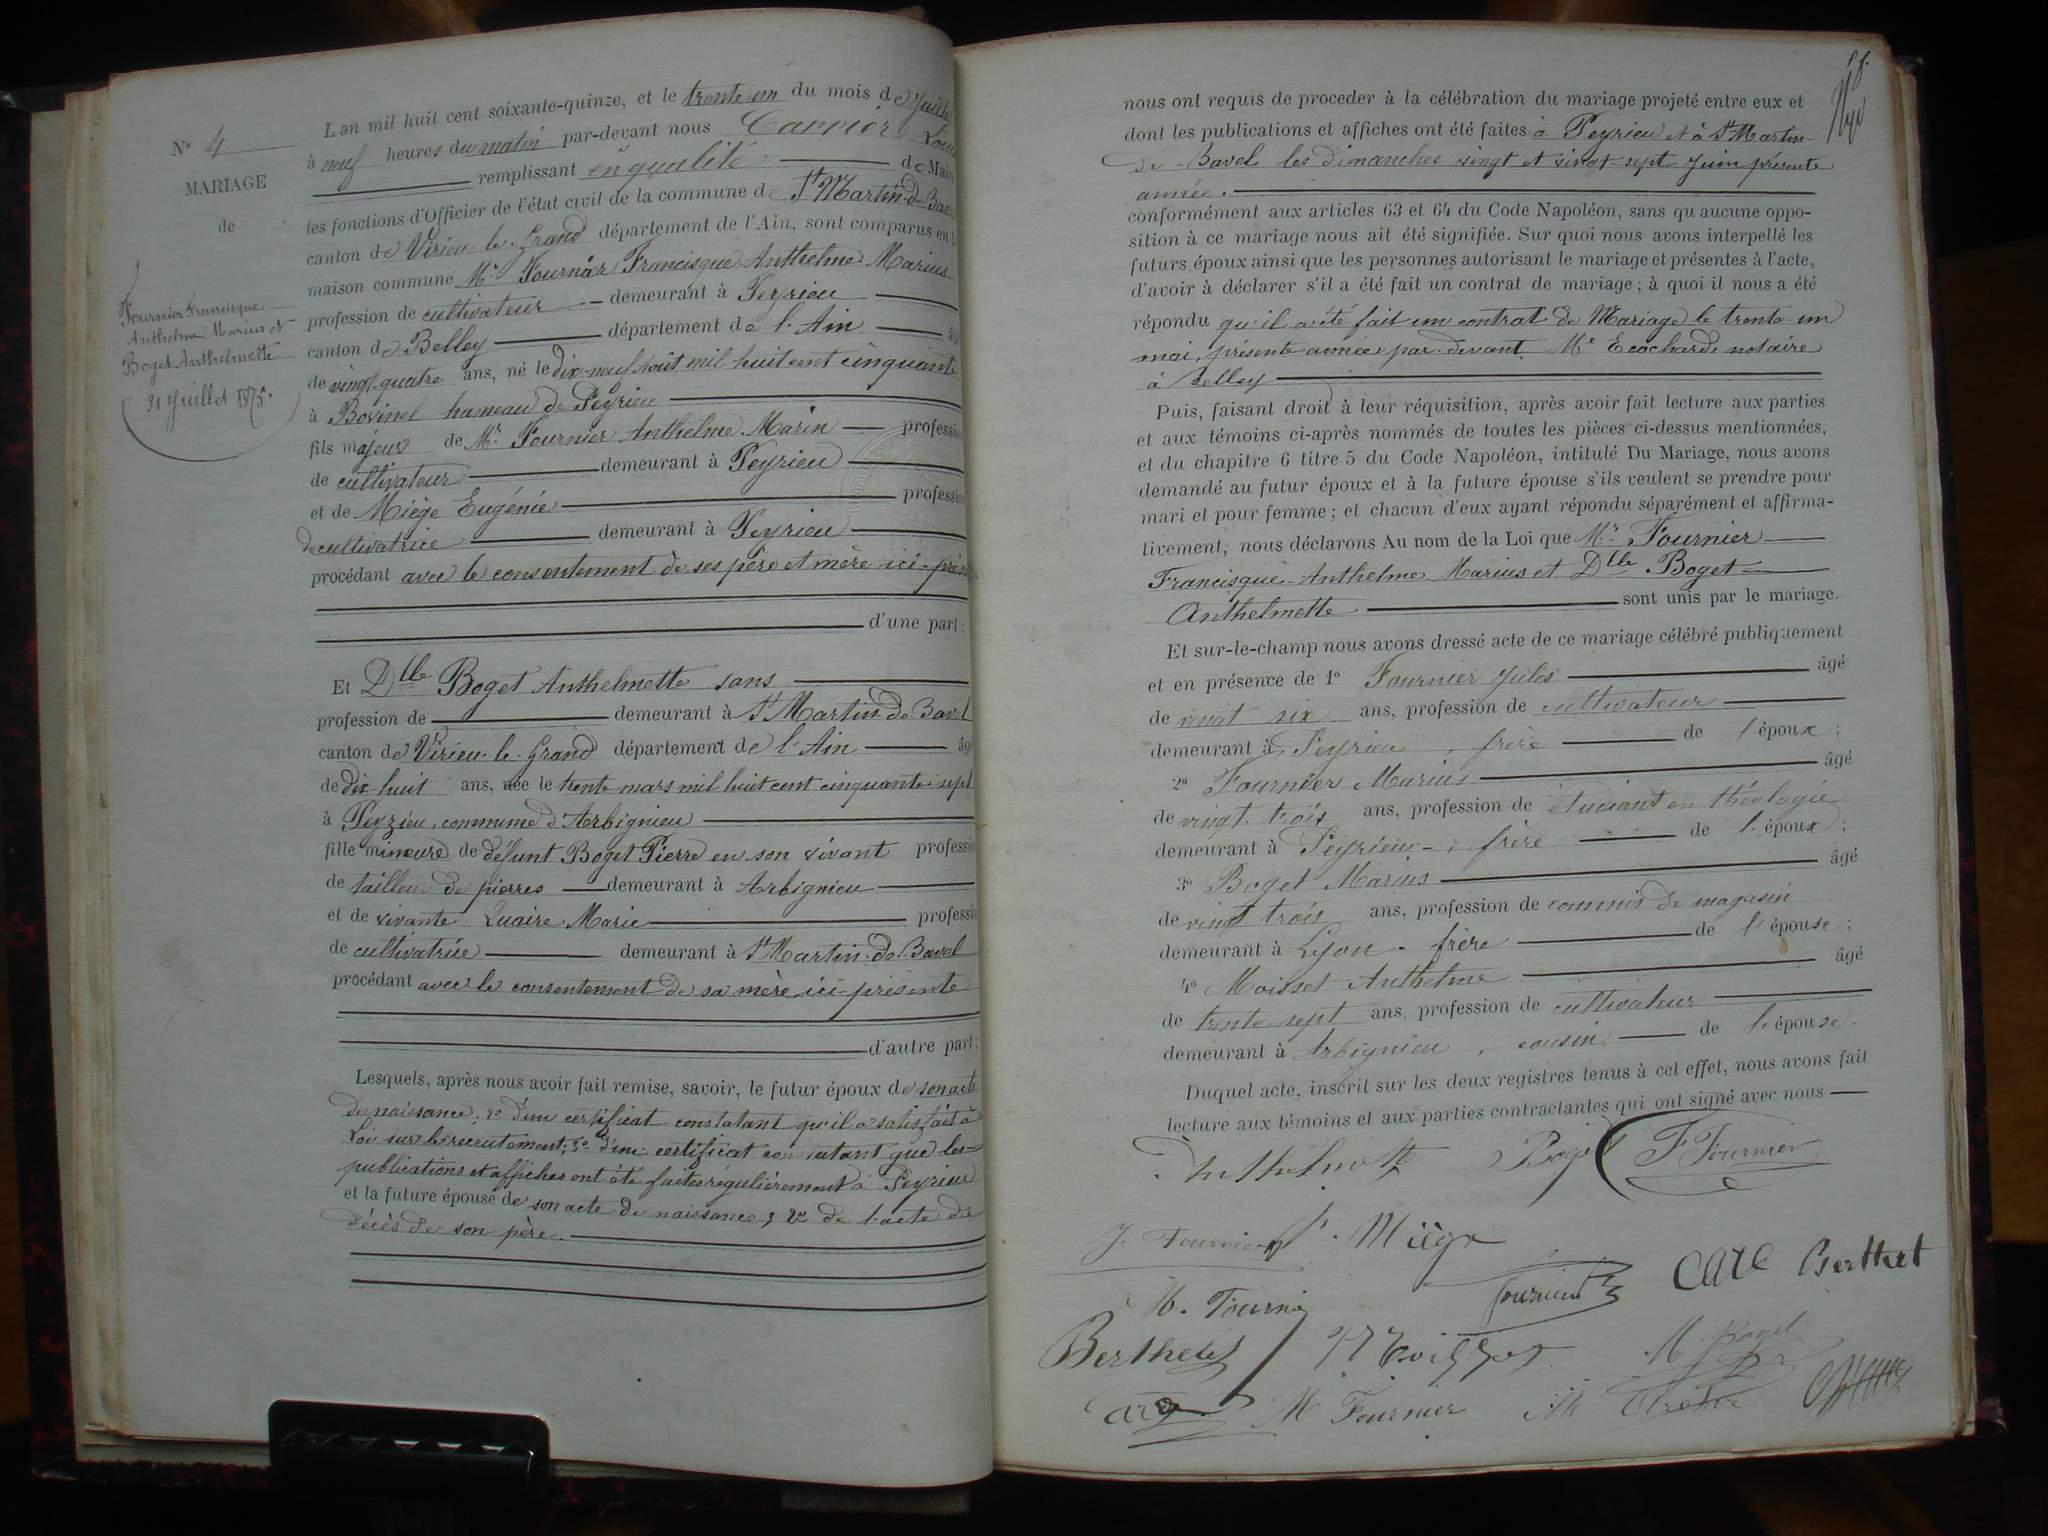 Nº 4
MARIAGE
de
Fournier Francisque
Anthelme Marius et
Boget Anthelmette
31 Juillet 1875.
L'an mil huit cent soixante-quinze, et le trente-un du mois de Juillet
à neuf heures du matin par-devant nous Carrier Louis
remplissant en qualité de Maire
les fonctions d'Officier de l'état civil de la commune de St Martin-de-Bavel
canton de Virieu-le-Grand département de l'Ain, sont comparus en la
maison commune Mr Fournier Francisque Anthelme Marius
profession de cultivateur demeurant à Peyrieu
canton de Belley département de l'Ain âgé
de vingt-quatre ans, né le dix-neuf août mil huit cent cinquante
à Bovinel hameau de Peyrieu
fils majeur de Mr Fournier Anthelme Marin profession
de cultivateur demeurant à Peyrieu
et de Miège Eugénie profession
de cultivatrice demeurant à Peyrieu
procédant avec le consentement de ses père et mère ici-présents
d'une part;
Et Dlle Boget Anthelmette sans
profession de demeurant à St Martin-de-Bavel
canton de Virieu-le-Grand département de l'Ain âgé
de dix-huit ans, née le trente mars mil huit cent cinquante-sept
à Peyzieu, commune d'Arbignieu
fille mineure de défunt Boget Pierre en son vivant profession
de tailleur de pierres demeurant à Arbignieu
et de vivante Quaire Marie profession
de cultivatrice demeurant à St Martin-de-Bavel
procédant avec le consentement de sa mère ici-présente
d'autre part;
Lesquels, après nous avoir fait remise, savoir, le futur époux de son acte
de naissance; 2º d'un certificat constatant qu'il a satisfait à
Loi sur le recrutement; 3º d'un certificat constatant que les
publications et affiches ont été faites régulièrement à Peyrieu
et la future épouse de son acte de naissance; 2º de l'acte de
décès de son père.
nous ont requis de proceder à la célébration du mariage projeté entre eux et
dont les publications et affiches ont été faites à Peyrieu et à St Martin-
de-Bavel les dimanches vingt et vingt-sept Juin présente
année.
conformément aux articles 63 et 64 du Code Napoléon, sans qu'aucune oppo-
sition à ce mariage nous ait été signifiée. Sur quoi nous avons interpellé les
futurs époux ainsi que les personnes autorisant le mariage et présentes à l'acte,
d'avoir à déclarer s'il a été fait un contrat de mariage; à quoi il nous a été
répondu qu'il a été fait un contrat de Mariage le trente-un
mai, présente année par-devant Me Ecochard, notaire
à Belley
Puis, faisant droit à leur réquisition, après avoir fait lecture aux parties
et aux témoins ci-après nommés de toutes les pièces ci-dessus mentionnées,
et du chapitre 6 titre 5 du Code Napoléon, intitulé Du Mariage, nous avons
demandé au futur époux et à la future épouse s'ils veulent se prendre pour
mari et pour femme; et chacun d'eux ayant répondu séparément et affirma-
tivement, nous déclarons Au nom de la Loi que Mr Fournier
Francisque-Anthelme Marius et Dlle Boget
Anthelmette sont unis par le mariage.
Et sur-le-champ nous avons dressé acte de ce mariage célébré publiquement
et en présence de 1º Fournier Jules âgé
de vingt six ans, profession de cultivateur
demeurant à Peyrieu, frère de l'époux;
2º Fournier Marius âgé
de vingt-trois ans, profession de étudiant en théologie
demeurant à Peyrieu, frère de l'époux;
3º Boget Marius âgé
de vingt trois ans, profession de commis de magasin
demeurant à Lyon. frère de l'épouse;
4º Moisset Anthelme âgé
de trente-sept ans, profession de cultivateur
demeurant à Arbignieu, cousin de l'épouse.
Duquel acte, inscrit sur les deux registres tenus à cet effet, nous avons fait
lecture aux témoins et aux parties contractantes qui ont signé avec nous
Anthelmette Boget F Fournier
J. Fournier Miège
Fournier Berthet
Berthelet M. Boget
M Fournier